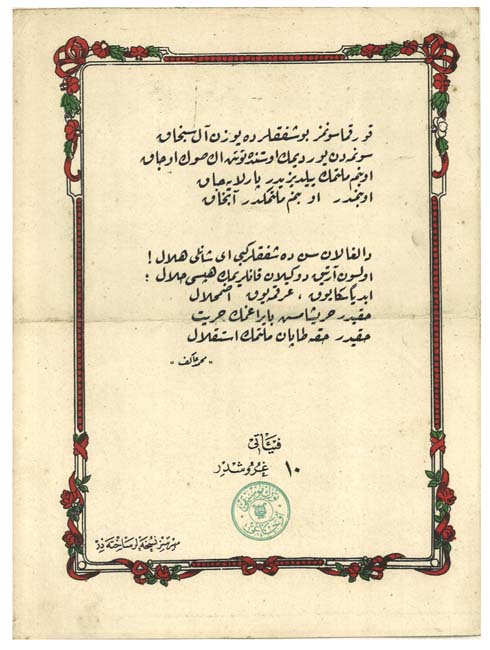 قورقما سونمز بو شفقلرده یوزن آل سنجاق
سونمدن یوردیمك اوستنده توتن اك صوك اوجاق
او بنم ملتمك ییلدیزیدر پارلایه جاق
او بنمدر او بنم ملتمكدر آنجاق
دالغالان سن ده شفقلر كبی ای شانلی هلال !
اولسون آرتیق دوكیلان قانلریمك هپسی حلال :
ابدیاً سكا یوق ، عرقمه یوق اضمحلال
حقیدر حر یشامش بایراغمك حریت
حقیدر حقه طاپان ملتمك استقلال
" محمد عاكف "
فیئاتی
١٠ غروشدر
مهرسز نسخه لر ساخته در